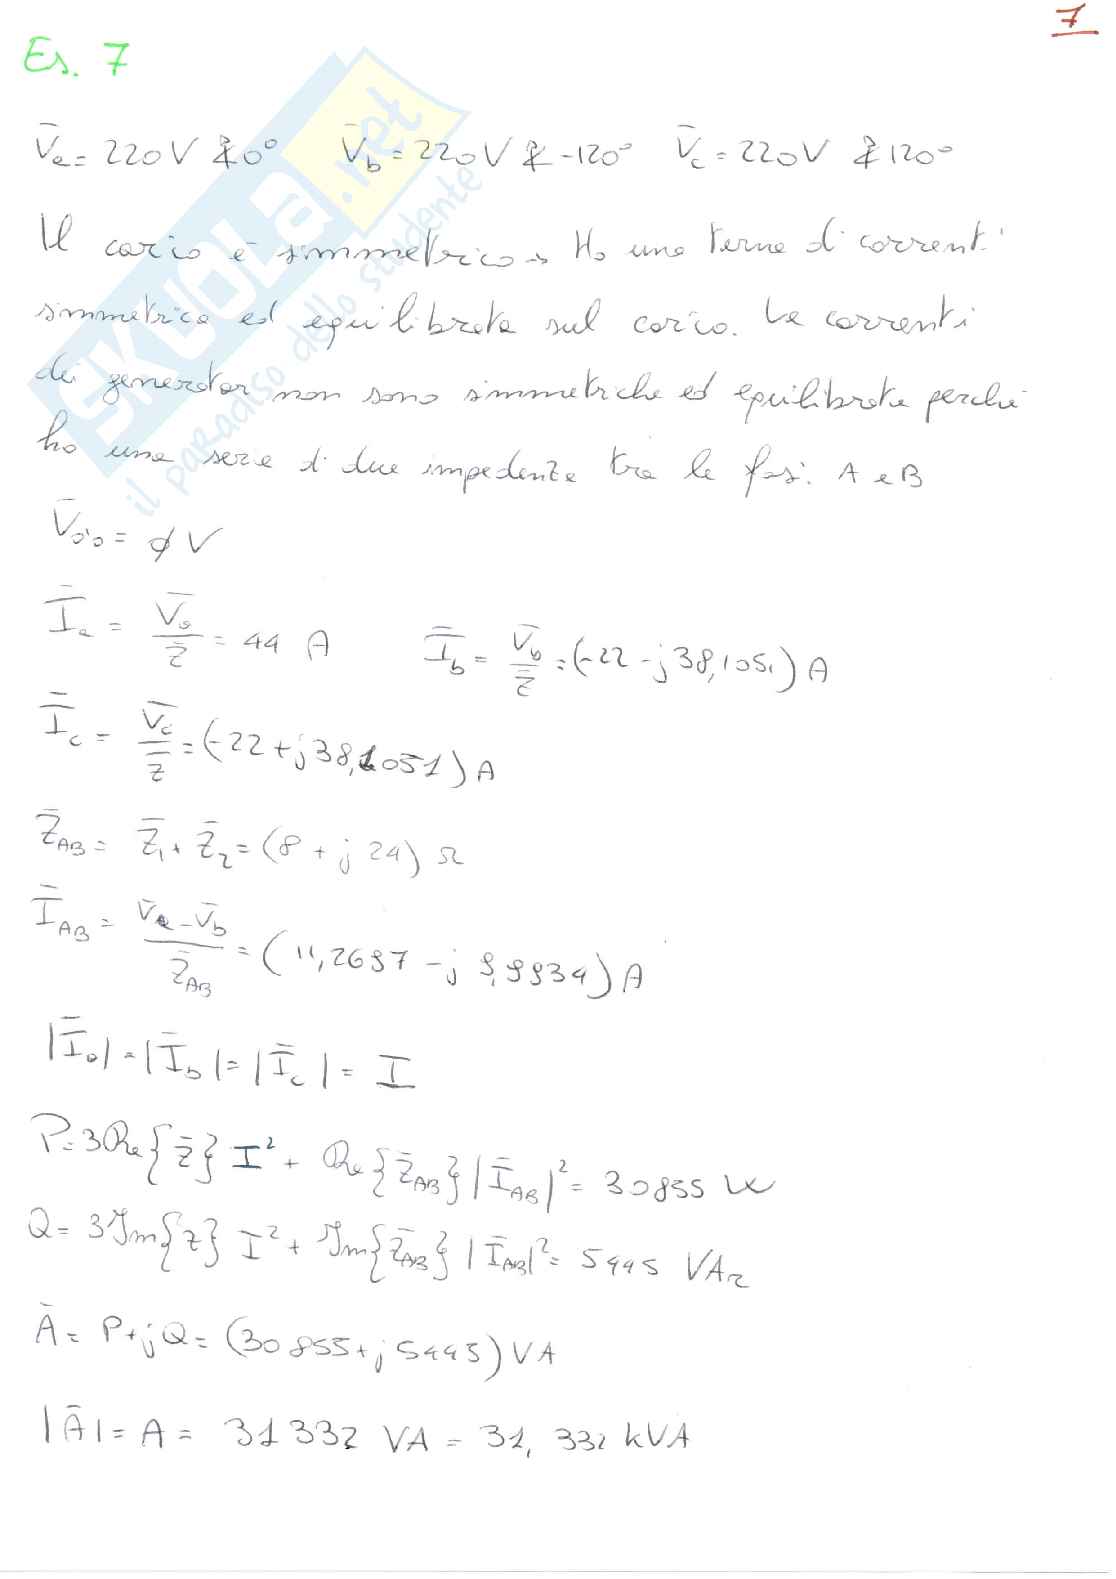 7
Es. 7
V̄a = 220V ∡0° V̄b = 220V ∡-120° V̄c = 220V ∡120°
Il carico è simmetrico → Ho una terna di correnti
simmetrica ed equilibrata sul carico. Le correnti
dei generatori non sono simmetriche ed equilibrate perché
ho una serie di due impedenze tra le fasi A e B
V̄o'o = ∅ V
Īa = V̄a/Z̄ = 44 A Īb = V̄b/Z̄ = (-22 - j38,1051) A
Īc = V̄c/Z̄ = (-22 + j38,1051) A
Z̄AB = Z̄1 + Z̄2 = (8 + j 24) Ω
ĪAB = (V̄a - V̄b)/Z̄AB = (11,2697 - j 9,9934) A
|Īa| = |Īb| = |Īc| = I
P = 3Re{Z̄} I² + Re{Z̄AB} |ĪAB|² = 30855 W
Q = 3Im{Z} I² + Im{Z̄AB} |ĪAB|² = 5445 VAr
Ā = P+jQ = (30855 + j5445) VA
|Ā| = A = 31332 VA = 31,332 kVA
SKUOLA.net
il paradiso dello studente